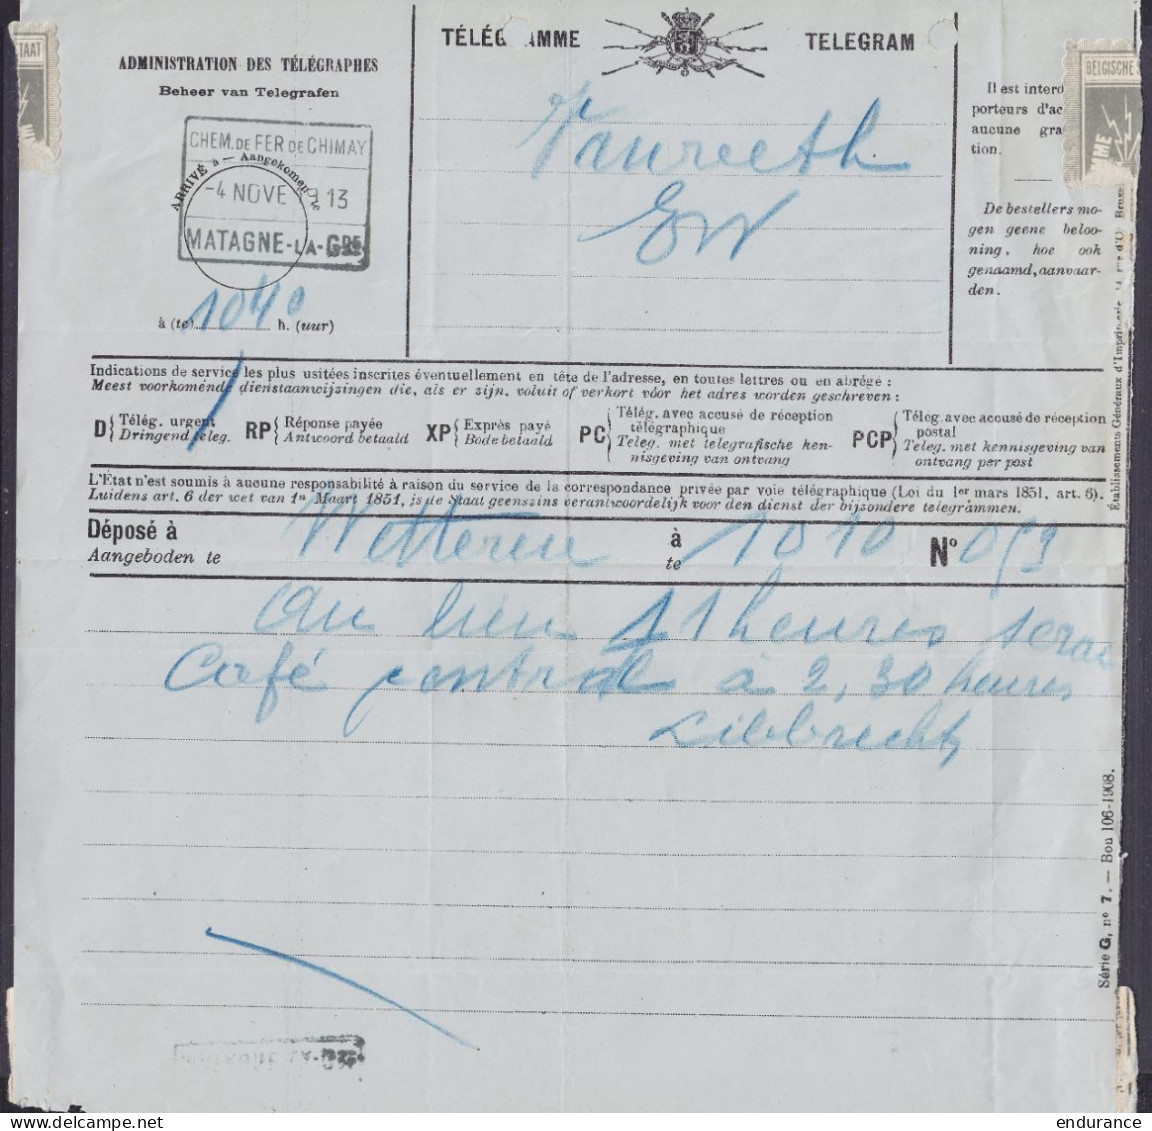 TÉLÉG AMME TELEGRAM
ADMINISTRATION DES TÉLÉGRAPHES
Beheer van Telegrafen
CHEM. DE FER DE CHIMAY
ARRIVÉ à — Aangekomen te
-4 NOVE 13
MATAGNE-LA-GDE
à (te) 10 40 h. (uur)
Il est interd
porteurs d'ac
aucune gra
tion.
De bestellers mo-
gen geene beloo-
ning, hoe ook
genaamd, aanvaar-
den.
STAAT
BELGISCHE
Indications de service les plus usitées inscrites éventuellement en tête de l'adresse, en toutes lettres ou en abrégé :
Meest voorkomende dienstaanwijzingen die, als er zijn, voluit of verkort vóór het adres worden geschreven :
D Télég. urgent
Dringend teleg.
RP Réponse payée
Antwoord betaald
XP Exprès payé
Bode betaald
PC Télég. avec accusé de réception
télégraphique
Teleg. met telegrafische ken-
nisgeving van ontvang
PCP Télég. avec accusé de réception
postal
Teleg. met kennisgeving van
ontvang per post
L'État n'est soumis à aucune responsabilité à raison du service de la correspondance privée par voie télégraphique (Loi du 1er mars 1851, art. 6).
Luidens art. 6 der wet van 1n Maart 1851, is de Staat geenszins verantwoordelijk voor den dienst der bijzondere telegrammen.
Déposé à Wetteren à 10 10 No
Aangeboden te te
au lieu 11 heures serai
Café central à 2,30 heures
Libbrecht
Établissements Généraux d'Imprimerie
Série G, no 7. — Bou 106-1908.
endurance